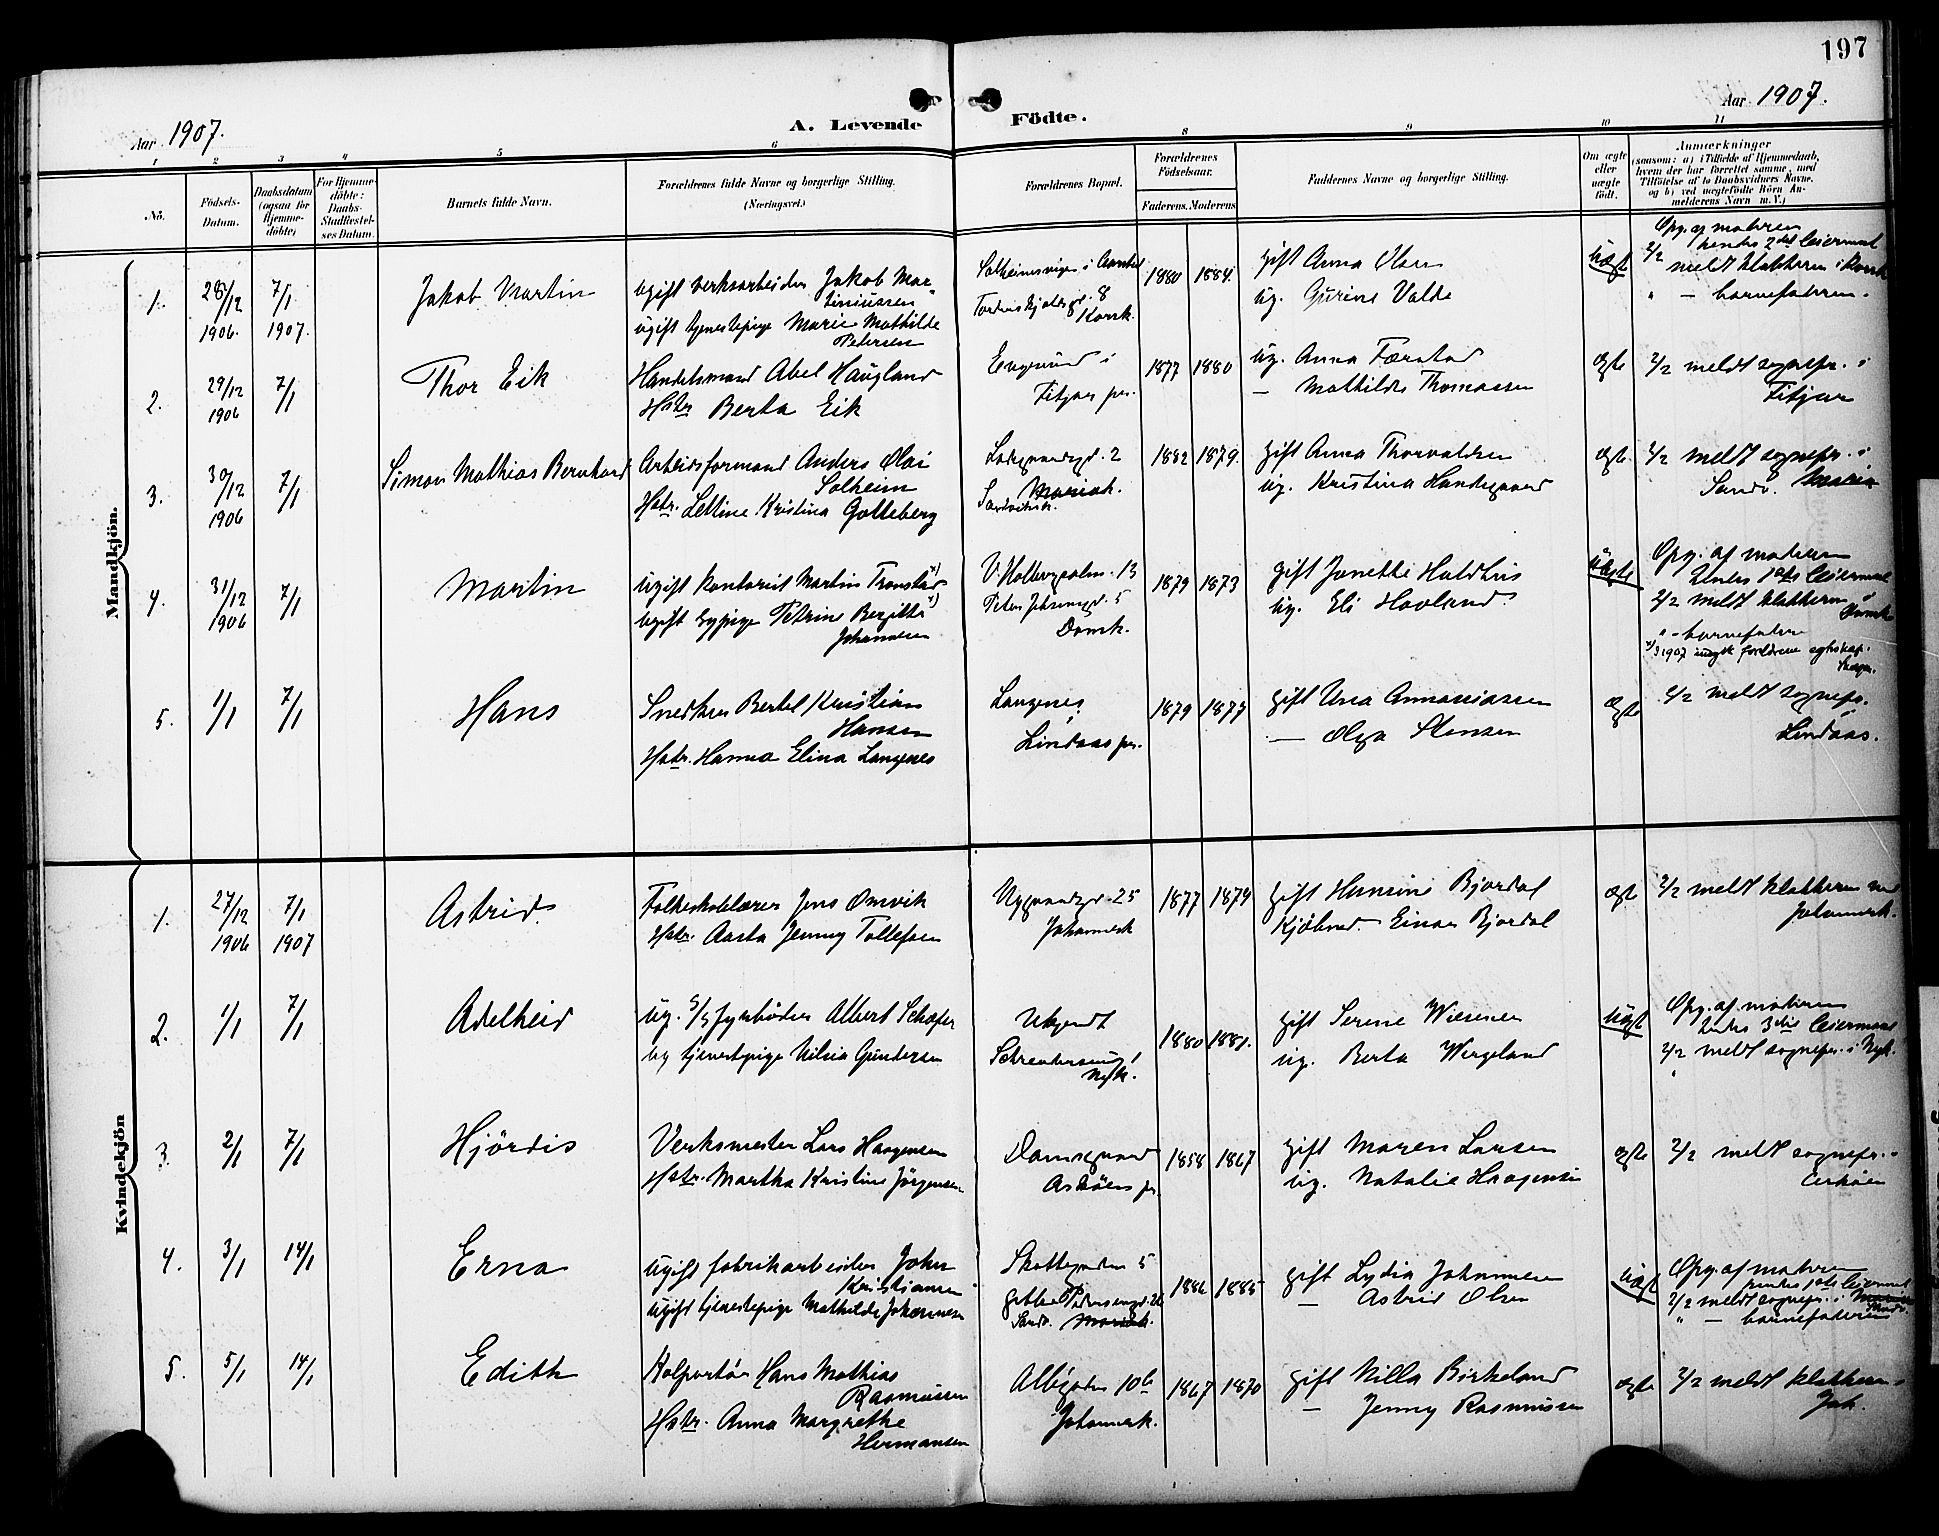 197
Aar 1907.
A. Levende Födte.
Aar 1907.
1 2 3 4 5 6 8 9 10 11
Nö.
Födsels-
Datum.
Daabsdatum
(ogsaa for
Hjemme-
döbte)
For Hjemme-
döbte:
Daabs-
Stadfæstel-
ses Datum.
Barnets fulde Navn.
Forældrenes fulde Navne og borgerlige Stilling.
(Næringsvei.)
Forældrenes Bopæl.
Forældrenes
Födselsaar.
Faderens. Moderens
Faddernes Navne og borgerlige Stilling.
Om ægte
eller
uægte
födt.
Anmærkninger
(saasom: a) i Tilfælde af Hjemmedaab,
hvem der har forrettet samme, med
Tilföielse af to Daabsvidners Navne.
og b) ved uægtefödte Börn An-
melderens Navn m.V.)
Mandkjön.
1. 28/12 1906. 7/1 1907. Jakob Martin
ugift verksarbeider Jakob Mar-
tiniussen
ugift tjenestepige Marie Mathilde
Petersen
Solheimsviken i
Tordenskjoldsgd. 8
Korsk.
1880 1884.
gift Anna Olsen
ug. Gurine Valde
uægt
Opg. af moderen
hendes 2det leiermaal
2/2 meldt klokkeren i Korsk
" — barnefaderen.
2. 29/12 1906 7/1 Thor Eik
Handelsmand Abel Haugland
Hstr Berta Eik
Engesund i
Fitjar pr.
1877 1880
ug. Anna Færstad
— Mathilde Thomassen
ægte
2/2 meldt sognepr. i
Fitjar
3. 30/12 1906 7/1 Simon Mathias Bernhard
Arbeidsformand Anders Olai
Solheim
Hstr. Lettine Kristina Golteberg
2
Mariak.
Sandviksk.
1882 1879.
gift Anna Thorvaldsen
ug. Kristina Handegaard
ægte
2/2 meldt sognepr. i
Sandv. Maria
4. 31/12 1906 7/1 Martin
ugift kontorist Martin Tronstad x)
ugift sypige Petrine Bergitte x)
Johannesen
V Holbergsalm. 13
5
Domk.
1879 1873
gift Janette Haldhus
ug. Eli Hovland
uægte
Opg. af moderen
hendes 1ste leiermaal
2/2 meldt klokkeren i
Domk
" - barnefader
x) 3 1907 indgik forældrene egteskap.
5. 1/1 7/1 Hans
Snedker Bertel Kristian
Hansen
Hstr. Hanna Elina Langenes
Langenes
Lindaas pr.
1879 1877
gift Una Annaniassen
— Olga Stensen
ægte
2/2 meldt sognepr.
Lindaas.
Kvindekjön
1. 27/12 1906 7/1 1907 Astrid.
Folkeskolelærer Jens Omvik
Hstr. Aasta Jenny Tollefsen
Nygaardsgd. 25
Johannesk
1877 1879
gift Hansine Bjordal
Kjöbmd. Einar Bjordal
ægte
2/2 meldt klokkeren ved
Johannesk.
2. 1/1 7/1 Adelheid
ug. S/S fyrbøder Albert Schæfer
ug tjenestepige Nilsia Gundersen
Ukjendt
Nyk.
1880 1881.
gift Serene Wiesener
ug. Berta Wergeland
uægt
Opg. af moderen
hendes 3die leiermaal
2/2 meldt sognepr. i Nyk.
"
3. 2/1 7/1 Hjördis
Verksmester Lars Haagensen
Hstr. Martha Kristine Jörgensen
Damsgaard
Askøens pr.
1858 1867
gift Maren Larsen
ug. Natalie Haagensen
ægte
2/2 meldt sognepr. i
Askøen
4. 3/1 14/1 Erna
ugift fabrikarbeider Johan
Kristiansen
ugift tjenestepige Mathilde Johannesen
Skottegaden 5
Sandv. Mariak.
1886 1885
gift Lydia Johannesen
— Astrid Olsen
uægt
Opg. af moderen
hendes 1ste leiermaal
2/2 meldt sognepr. i Maria
Sandv.
" — barnefaderen
5. 5/1 14/1 Edith
Kolportör Hans Mathias
Rasmussen
Hstr. Anna Margrethe
Hermansen
Allégaden 10b
Johannesk.
1867 1870
gift Nilla Birkeland
— Jenny Rasmussen
ægte
2/2 meldt klokkeren i
Joh.